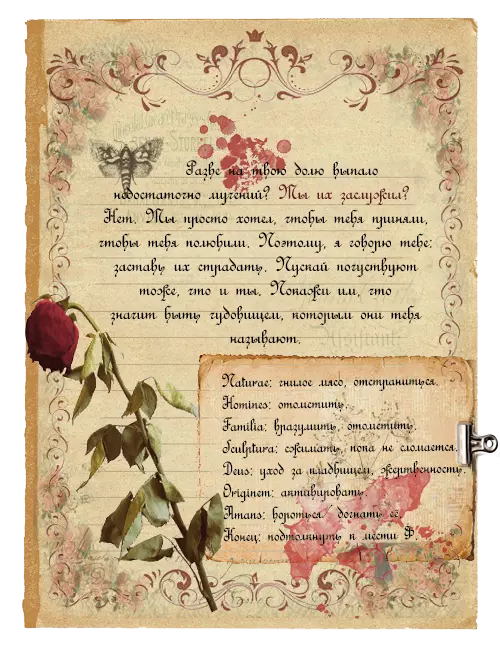 Разве на твою долю выпало
недостаточно мучений? Ты их заслужил?
Нет. Ты просто хотел, чтобы тебя приняли,
чтобы тебя полюбили. Поэтому, я говорю тебе:
заставь их страдать. Пускай почувствуют
тоже, что и ты. Покажи им, что
значит быть чудовищем, которым они тебя
называют.
Assistant:
Naturae: гнилое мясо, отстраниться.
Homines: отомстить.
Familia: вразумить, отомстить.
Sculptura: сжимать, пока не сломается.
Deus: уход за кладбищем, жертвенность.
Originem: активировать.
Amans: бороться/ догнать её.
Конец: подтолкнуть к мести Ф.